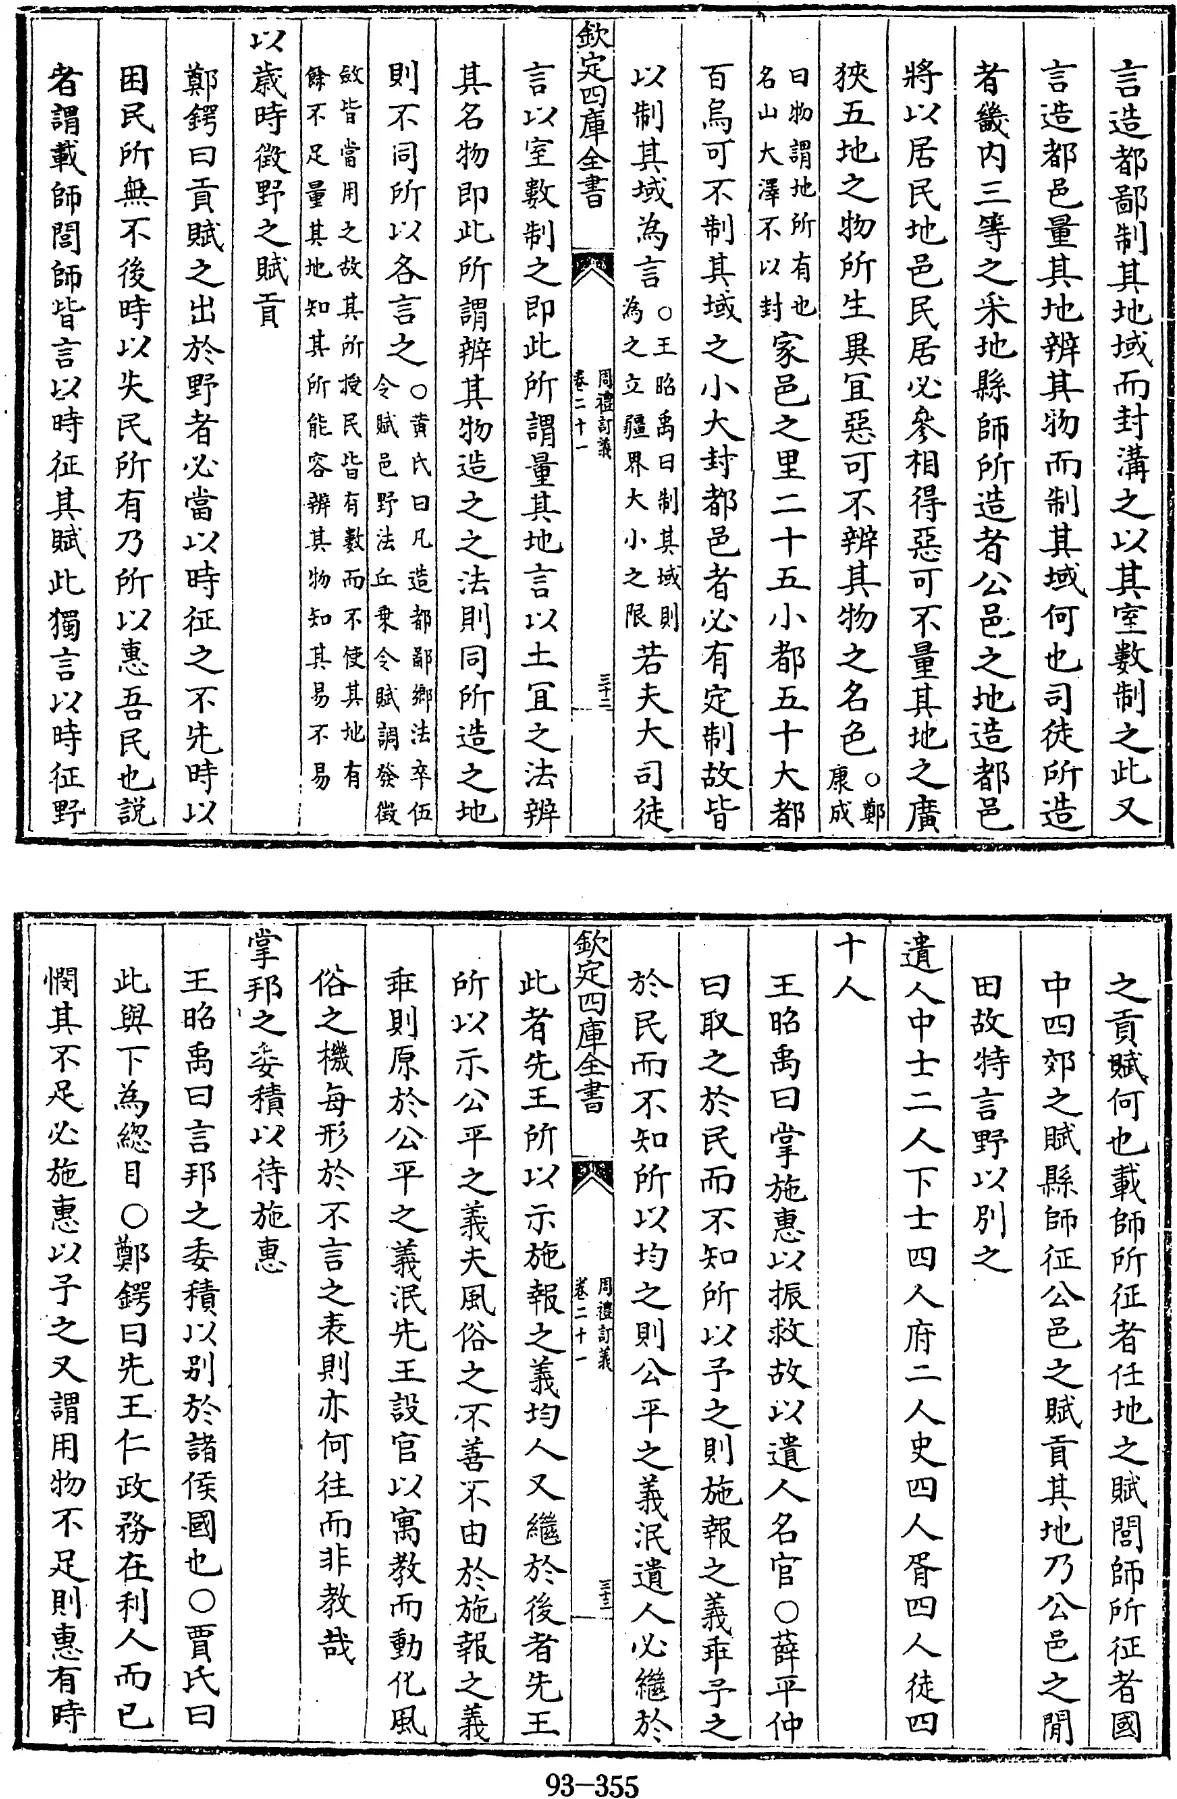 言造都鄙制其地域而封溝之以其室數制之此又
言造都邑量其地辨其物而制其域何也司徒所造
者畿内三等之采地縣師所造者公邑之地造都邑
將以居民地邑民居必參相得惡可不量其地之廣
狹五地之物所生異宜惡可不辨其物之名色○鄭康成
曰物謂地所有也名山大澤不以封家邑之里二十五小都五十大都
百烏可不制其域之小大封都邑者必有定制故皆
以制其域為言○王昭禹曰制其域則為之立疆界大小之限若夫大司徒
欽定四庫全書
周禮訂義
卷二十一
三十二
言以室數制之即此所謂量其地言以土宜之法辨
其名物即此所謂辨其物造之之法則同所造之地
則不同所以各言之○黄氏曰凡造都鄙鄉法卒伍令賦邑野法丘乗令賦調發徵
斂皆當用之故其所授民皆有數而不使其地有餘不足量其地知其所能容辨其物知其易不易
以歲時徵野之賦貢
鄭鍔曰貢賦之出於野者必當以時征之不先時以
困民所無不後時以失民所有乃所以惠吾民也説
者謂載師閭師皆言以時征其賦此獨言以時征野
之貢賦何也載師所征者任地之賦閭師所征者國
中四郊之賦縣師征公邑之賦貢其地乃公邑之閒
田故特言野以別之
遺人中士二人下士四人府二人史四人胥四人徒四
十人
王昭禹曰掌施惠以振救故以遺人名官○薛平仲
曰取之於民而不知所以予之則施報之義乖予之
於民而不知所以均之則公平之義泯遺人必繼於
欽定四庫全書
周禮訂義
卷二十一
三十三
此者先王所以示施報之義均人又繼於後者先王
所以示公平之義夫風俗之不善不由於施報之義
乖則原於公平之義泯先王設官以寓教而動化風
俗之機每形於不言之表則亦何往而非教哉
掌邦之委積以待施惠
王昭禹曰言邦之委積以别於諸侯國也○賈氏曰
此與下為緫目○鄭鍔曰先王仁政務在利人而已
憫其不足必施惠以予之又謂用物不足則惠有時
93-355